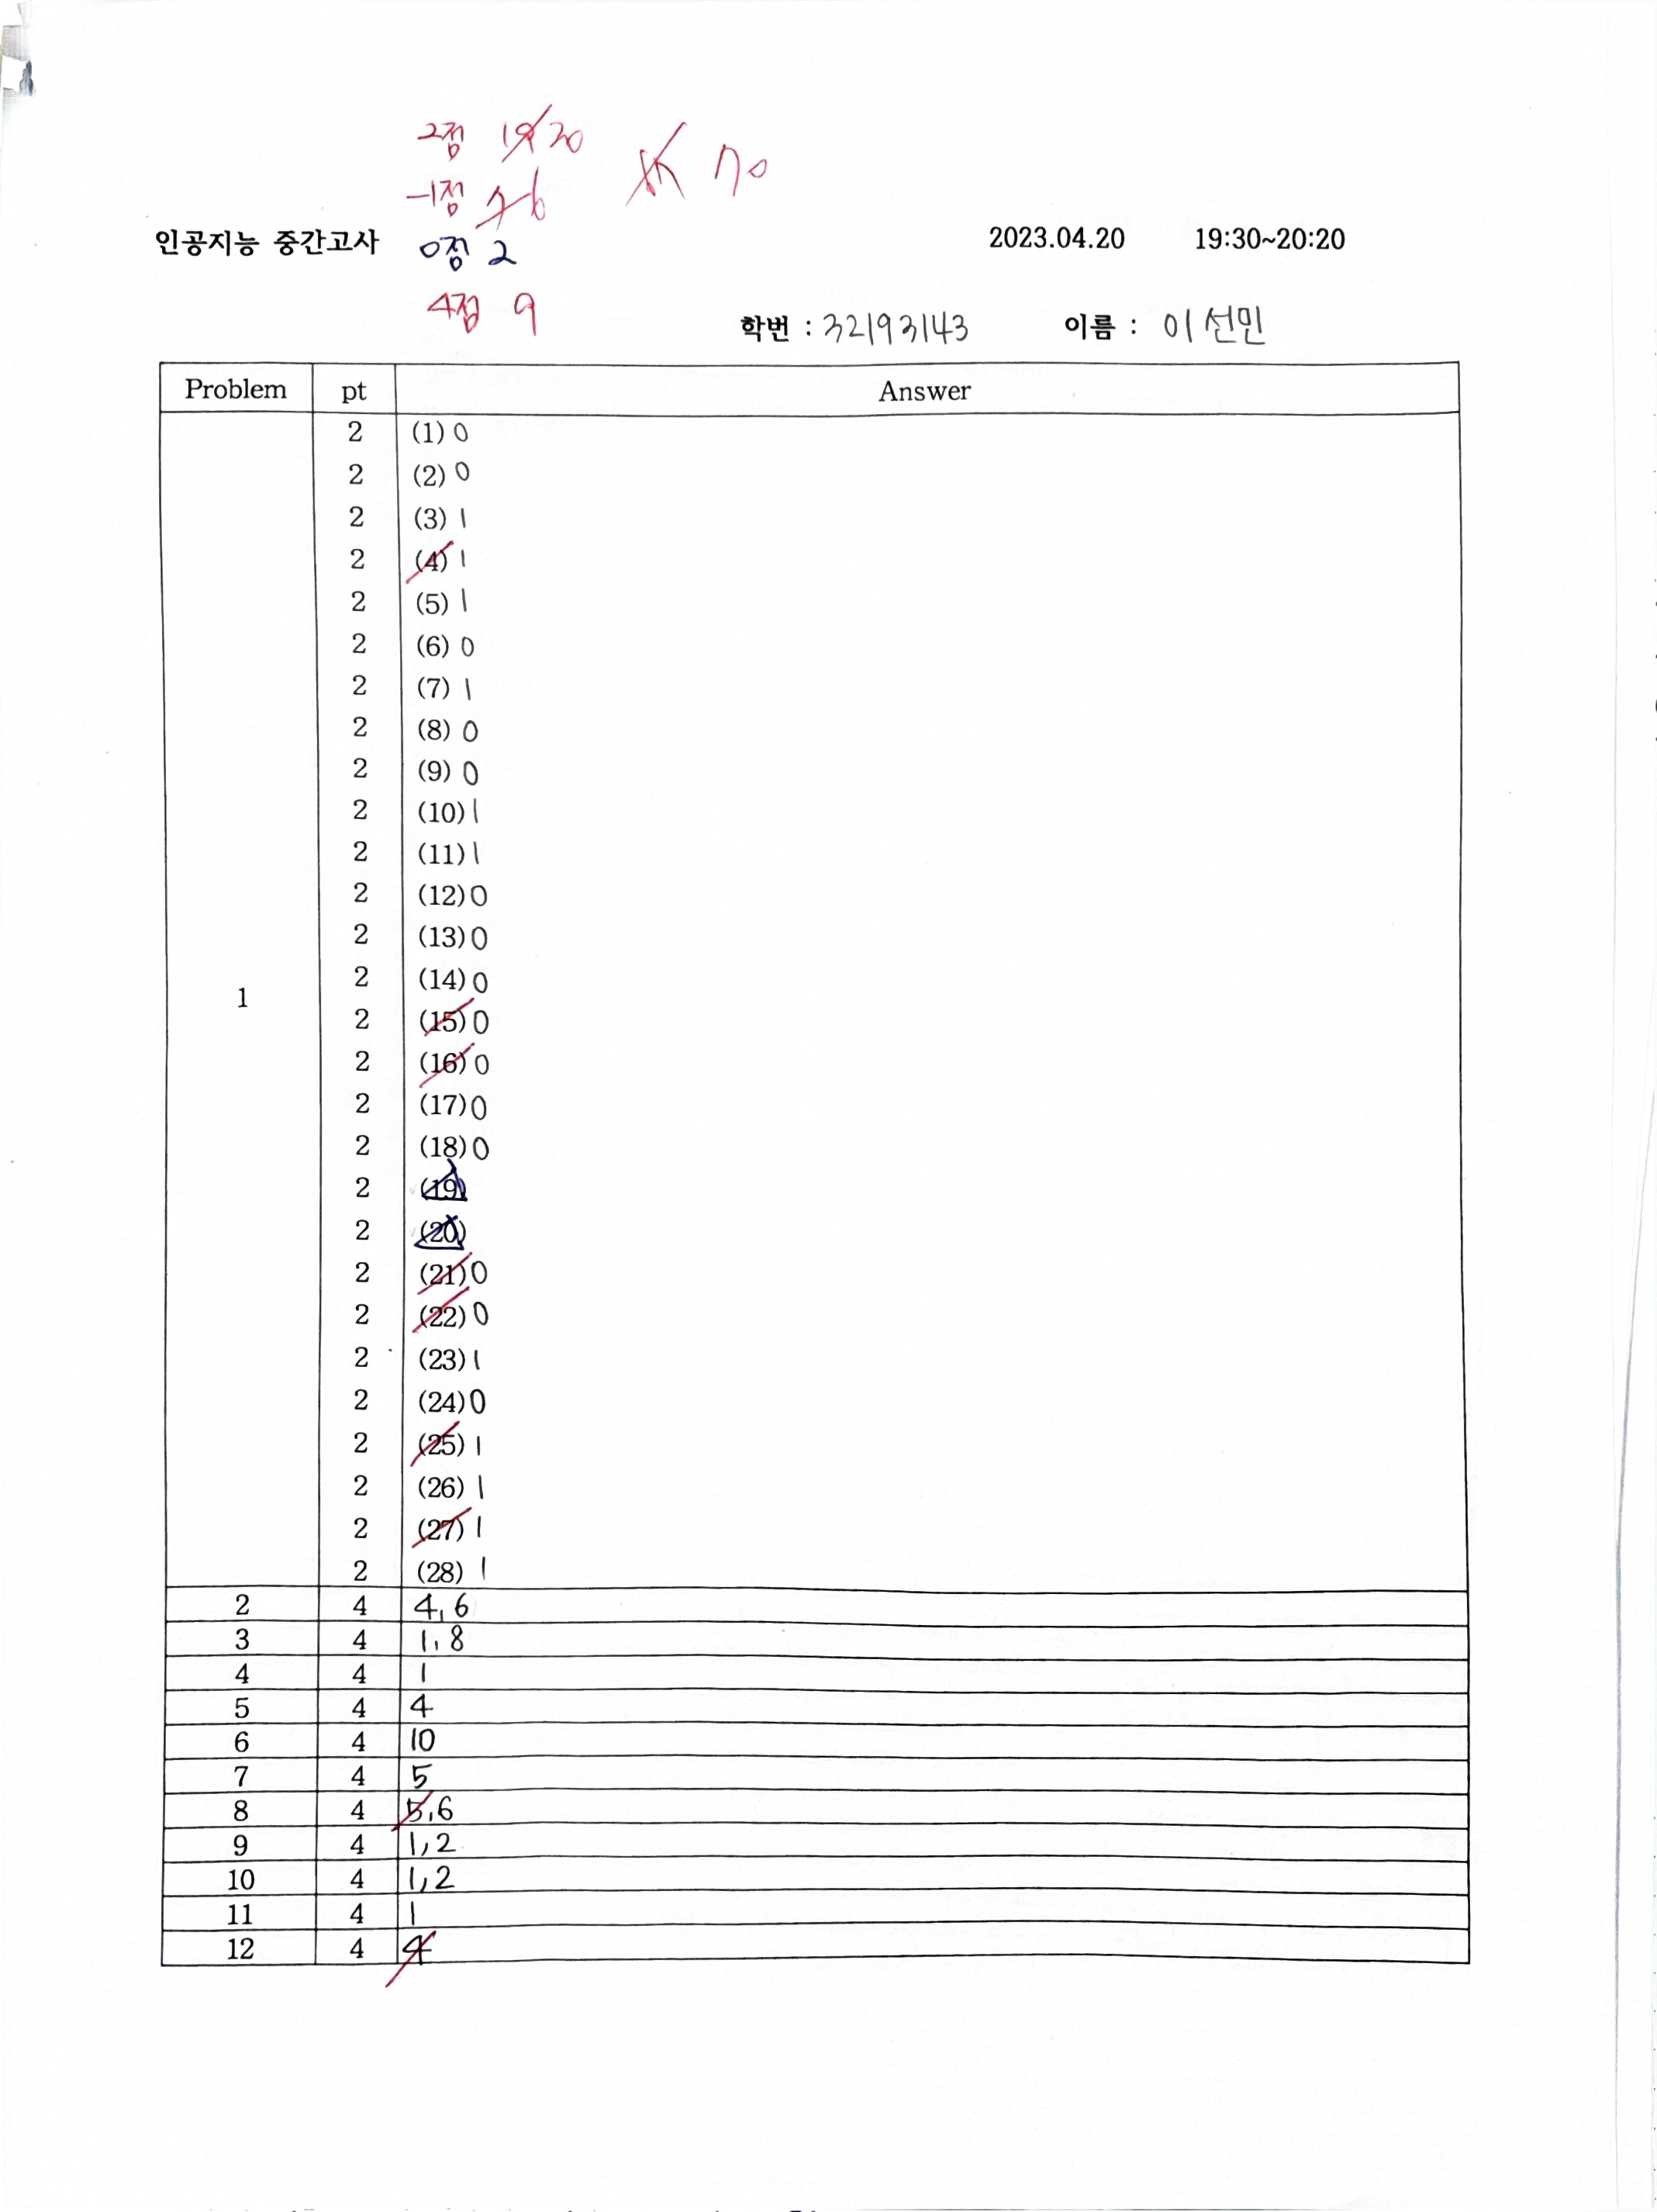 2점 19 20
-1점 7 6 70
인공지능 중간고사 0점 2 2023.04.20 19:30~20:20
4점 9
학번 : 32193143 이름 : 이선민
Problem pt Answer
2 (1) 0
2 (2) 0
2 (3) 1
2 (4) 1
2 (5) 1
2 (6) 0
2 (7) 1
2 (8) 0
2 (9) 0
2 (10) 1
2 (11) 1
2 (12) 0
2 (13) 0
2 (14) 0
1
2 (15) 0
2 (16) 0
2 (17) 0
2 (18) 0
2 (19)
2 (20)
2 (21) 0
2 (22) 0
2 (23) 1
2 (24) 0
2 (25) 1
2 (26) 1
2 (27) 1
2 (28) 1
2 4 4, 6
3 4 1, 8
4 4 1
5 4 4
6 4 10
7 4 5
8 4 5, 6
9 4 1, 2
10 4 1, 2
11 4 1
12 4 4